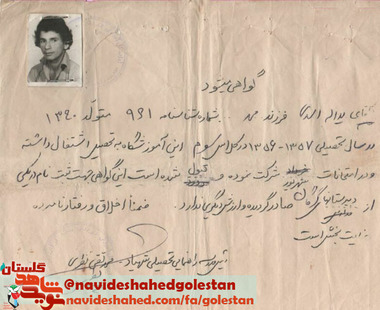 گواهی میشود
آقای یداله فرزند بشماره شناسنامه ۹۶۱ متولد ۱۳۴۰
در سال تحصیلی ۱۳۵۷-۱۳۵۶ در کلاس سوم این آموزشگاه به تحصیل اشتغال داشته
و در امتحانات شرکت نموده و قبول شده است این گواهی جهت ثبت نام در یکی
از دبیرستانهای صادر گردیده و ارزش دیگری ندارد. ضمناً اخلاق و رفتار نامبرده
رضایت بخش است
راهنمایی تحصیلی
گلستان
نوید شاهد
@navideshahedgolestan
navideshahed.com/fa/golestan